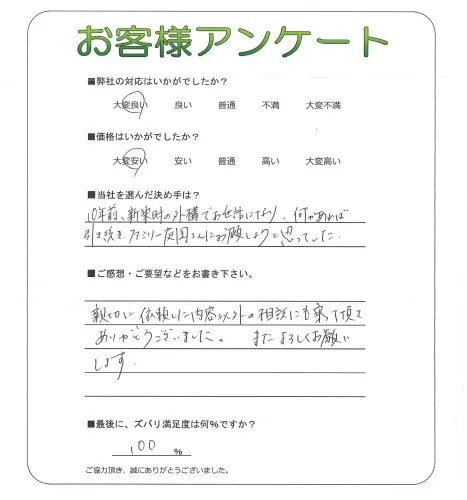 お客様アンケート
■弊社の対応はいかがでしたか？
大変良い 良い 普通 不満 大変不満
■価格はいかがでしたか？
大変安い 安い 普通 高い 大変高い
■当社を選んだ決め手は？
10年前、新築時の外構でお世話になり、何かあれば
引き続きファミリー庭園さんにお願しようと思っていた。
■ご感想・ご要望などをお書き下さい。
親切に依頼した内容以外の相談にも乗って頂き
ありがとうございました。 またよろしくお願い
します。
■最後に、ズバリ満足度は何%ですか？
100 %
ご協力頂き、誠にありがとうございました。